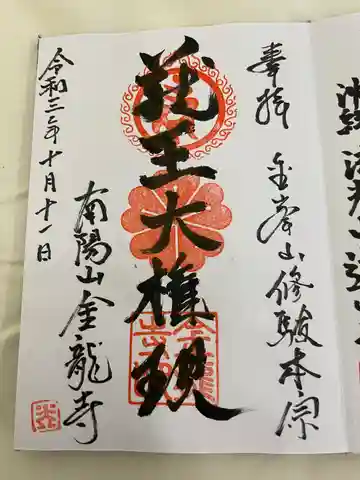 奉拝
金峯山修驗本宗
蔵王大権現
南陽山金龍寺
令和三年十月十一日